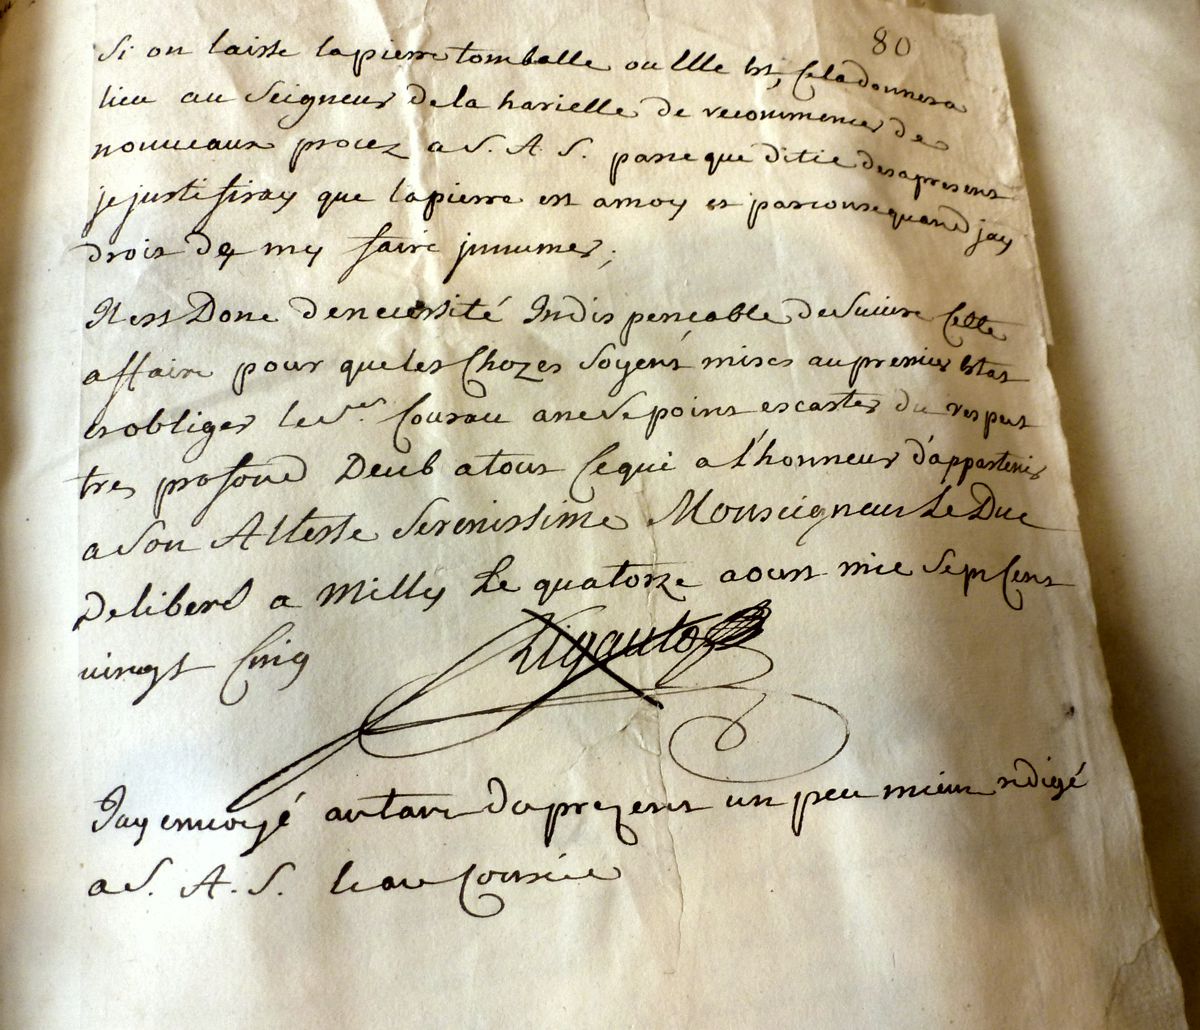 80
Si on laisse la pierre tomballe ou Elle Est, Cela donnera
lieu au Seigneur de la harielle de recommencer de
nouveaux procez a S. A. S. parse que ditil des apresent
je justifiray que la pierre est amoy et parconsequand jay
droit de my faire jnnumer;
Il est Donc de necessité Indispensable de Suivre Cette
affaire pour que les Chozes Soyent mises au premier Estat
et obliger le Sr. Courau a ne se point escarter du respect
tres profond Deub a tout Ce qui a l'honneur d'appartenir
a Son Altesse Serenissime Monseigneur Le Duc
Deliberé a Milly Le quatorze aoust mil Sept Cent
vingt Cinq
Rigault
Jay envoyé autant du prezent un peu mieux redigé
a S. A. S.